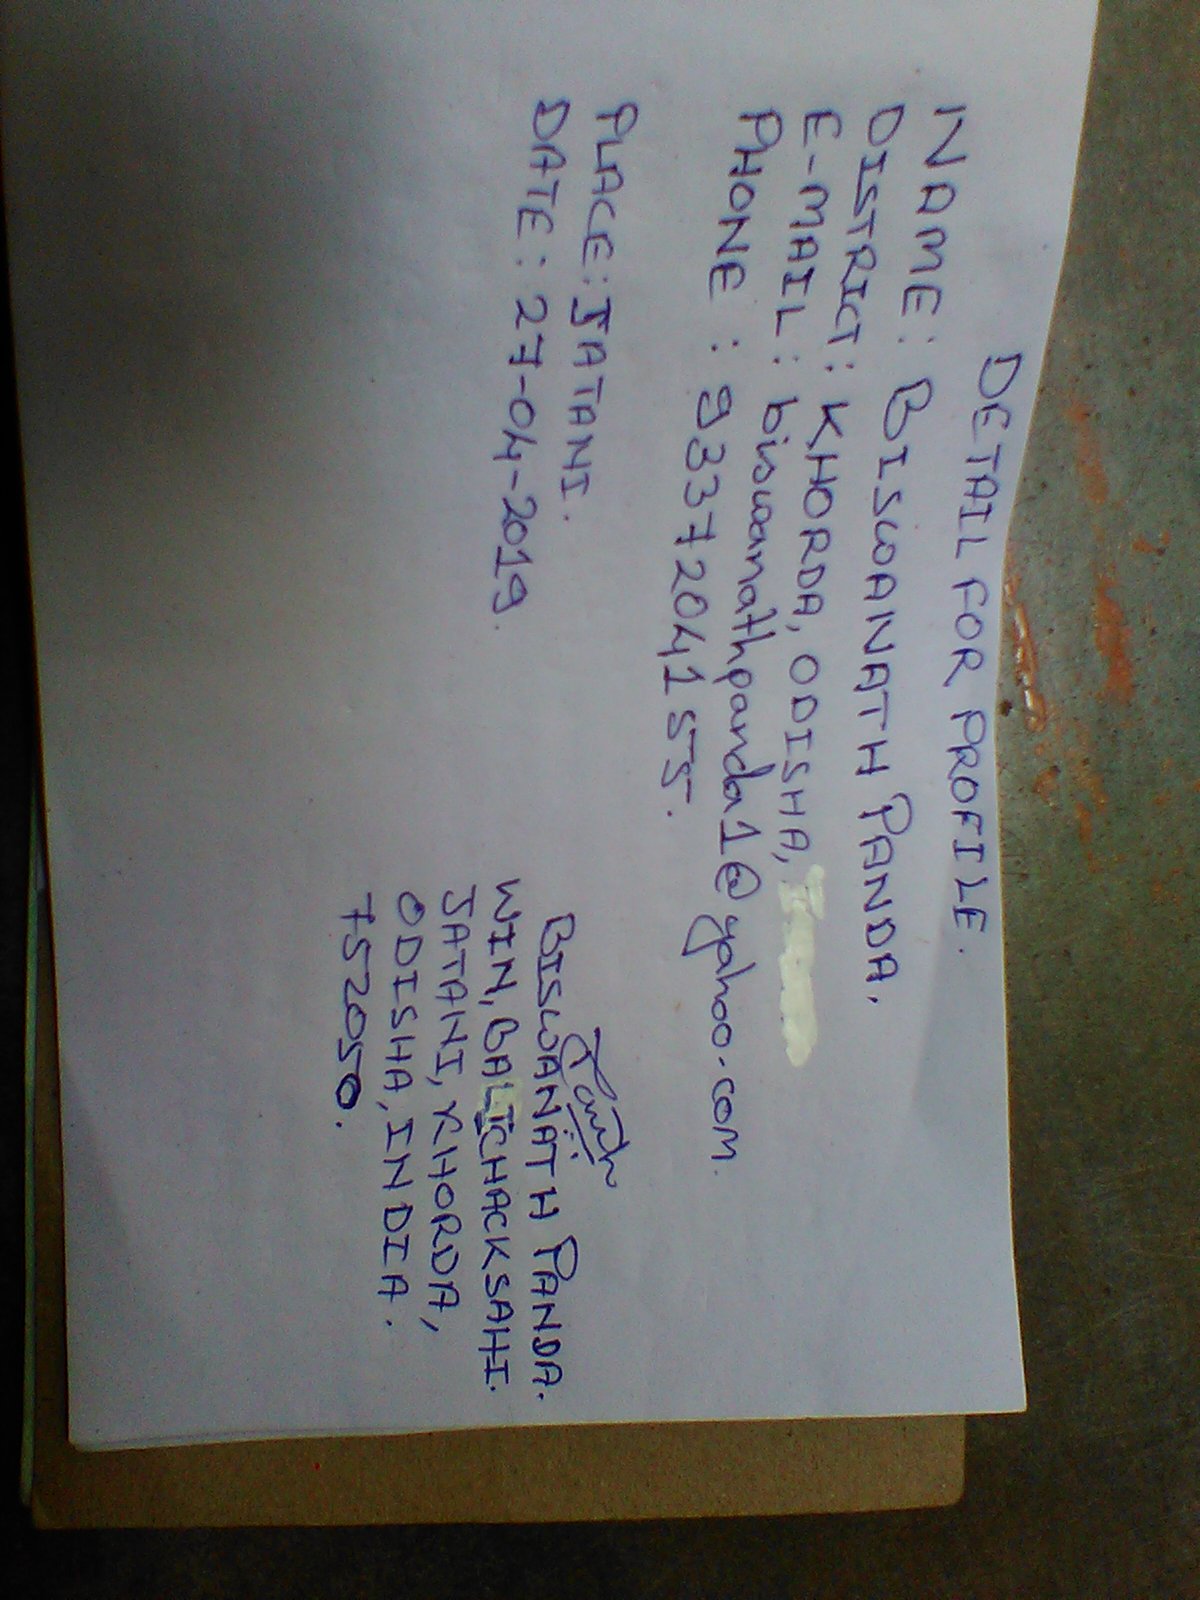 DETAIL FOR PROFILE.
NAME: BISWANATH PANDA.
DISTRICT: KHORDA, ODISHA,
E-MAIL: biswanathpanda1@yahoo.com
PHONE : 9337204155.
PLACE: JATANI.
DATE: 27-04-2019.
BISWANATH PANDA.
WIN, BALICHACKSAHI.
JATANI, KHORDA,
ODISHA, INDIA.
752050.